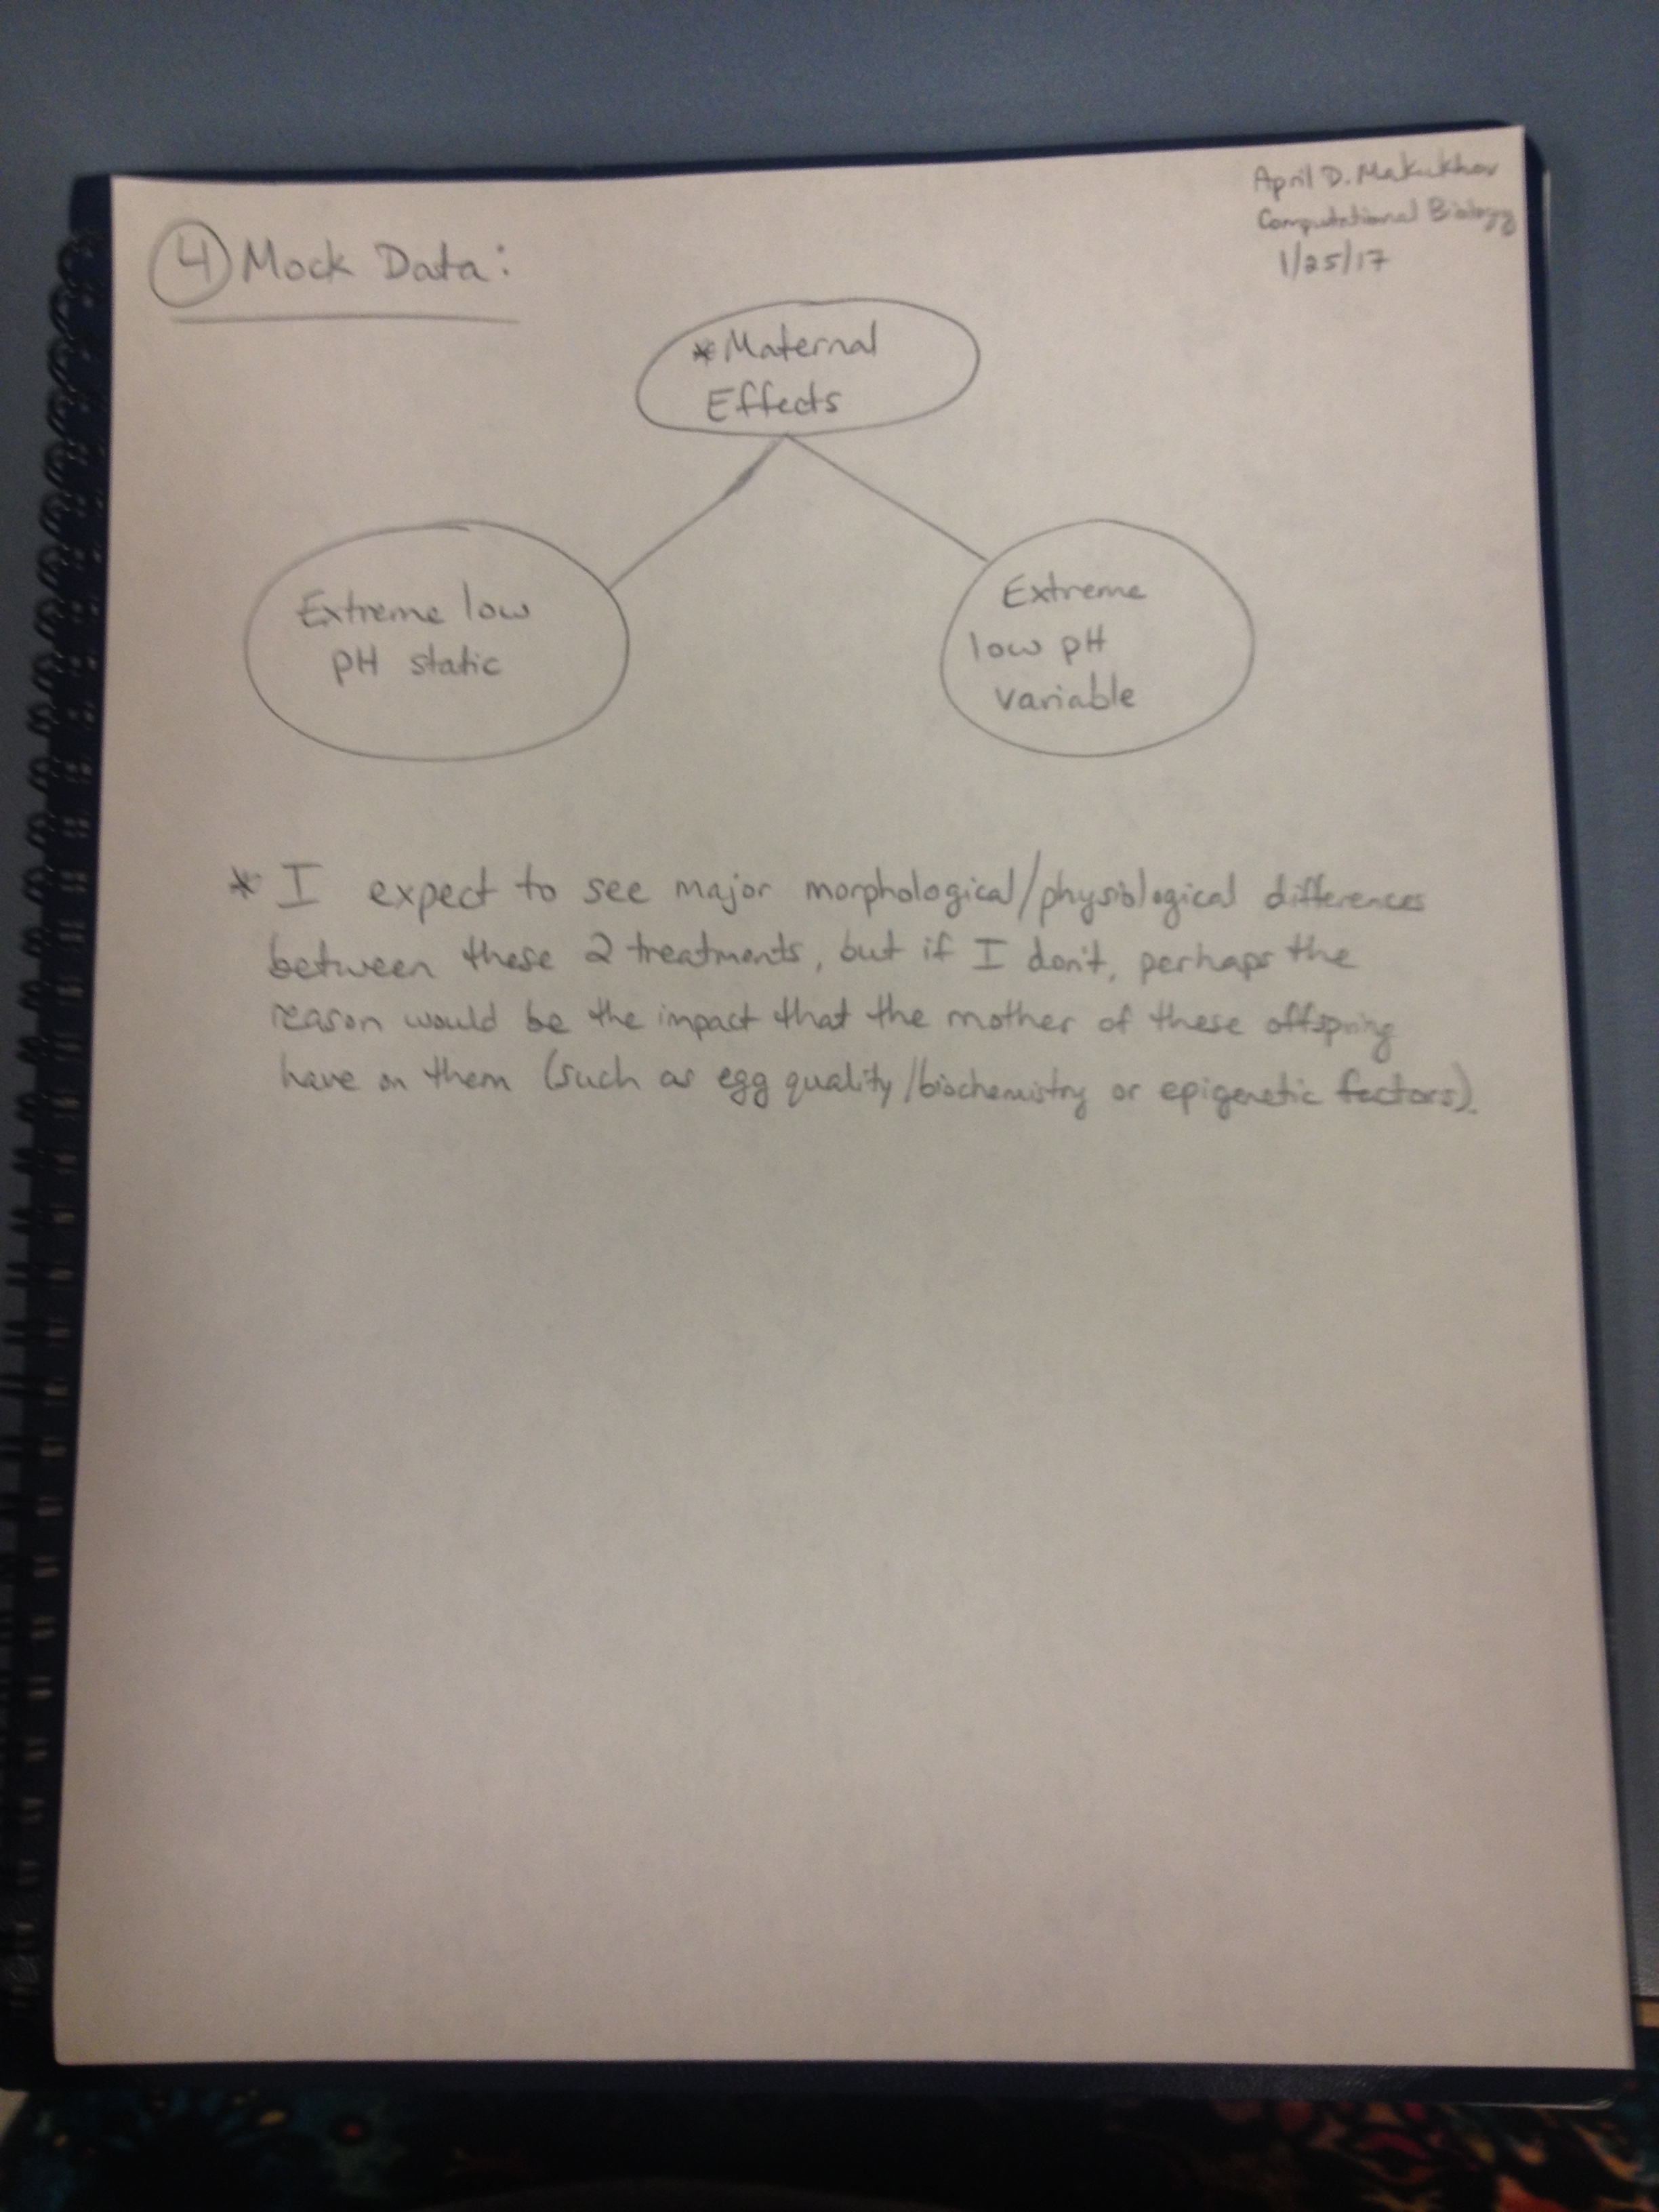 April D. Makukhov
Computational Biology
1/25/17
4 Mock Data:
*Maternal
Effects
Extreme low
pH static
Extreme
low pH
variable
* I expect to see major morphological/physiological differences
between these 2 treatments, but if I don't, perhaps the
reason would be the impact that the mother of these offspring
have on them (such as egg quality/biochemistry or epigenetic factors).